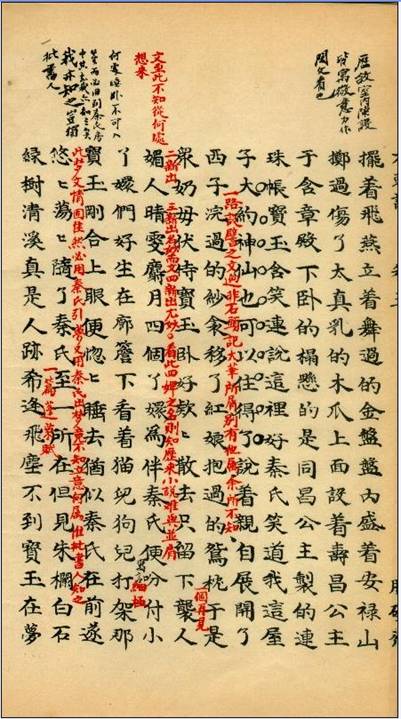 歷叙室内陳設
皆寓微意勿作
閒文看也
擺着飛燕立着舞過的金盤盤內盛着安禄山
擲過傷了太真乳的木瓜上面設着壽昌公主
于含章殿下卧的榻懸的是同昌公主製的連
珠帳寶玉含笑連說這裡好秦氏笑道我這屋
子大約神山也可以住得了說着親自展開了
一路設譬之文迥非石頭記大筆所屑別有他屬余所不知
西子浣過的紗衾移了紅娘抱過的鴛枕于是
衆奶母伏侍寶玉卧好欵ヒ散去只留下襲人
個再見
二新出 三新出名妙而文 四新出尤妙 看此四婢之名則知歷來小說難與並肩
文至此不知從何處
想來
媚人晴雯麝月四個丫嬛為伴秦氏便分付小
細極
丫嬛們好生在廊簷下看着猫兒狗兒打架那
何處睡卧不可入
寶玉剛合上眼便惚ヒ睡去猶似秦氏在前遂
此夢文情固佳然必用秦氏引夢又用秦氏出夢竟不知立意何屬惟批書人知之
悠ヒ蕩ヒ隨了秦氏至一所在但見朱欄白石
一篇蓬萊賦
綠樹清溪真是人跡希逢飛塵不到寶玉在夢
批書人